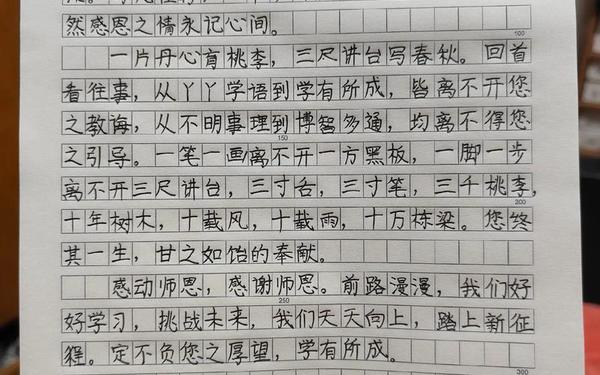 然感恩之情永记心间。
100
一片丹心育桃李，三尺讲台写春秋。回首
看往事，从丫丫学语到学有所成，皆离不开您
之教诲，从不明事理到博智多通，均离不得您
150
之引导。一笔一画离不开一方黑板，一脚一步
离不开三尺讲台，三寸舌，三寸笔，三千桃李，
200
十年树木，十载风，十载雨，十万栋梁。您终
其一生，甘之如饴的奉献。
感动师恩，感谢师恩。前路漫漫，我们好
250
好学习，挑战未来，我们天天向上，踏上新征
程。定不负您之厚望，学有所成。
300